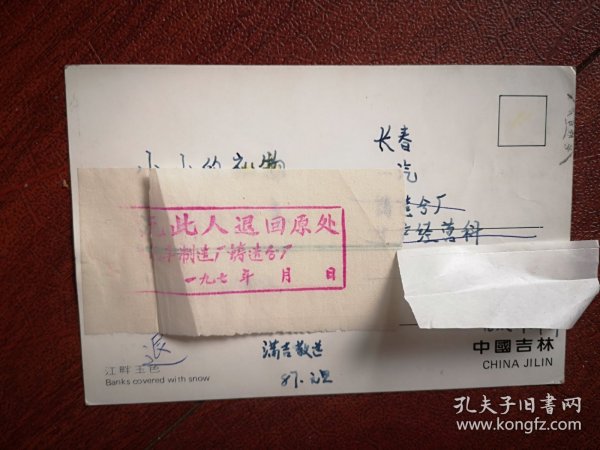 小小的礼物
长春
汽
铸造分厂
生产经营科
此人退回原处
车制造厂铸造分厂
一九七 年 月 日
退
满吉敬送
87.元旦
江畔玉色
Banks covered with snow
中國吉林
CHINA JILIN
孔夫子旧书网
www.kongfz.com